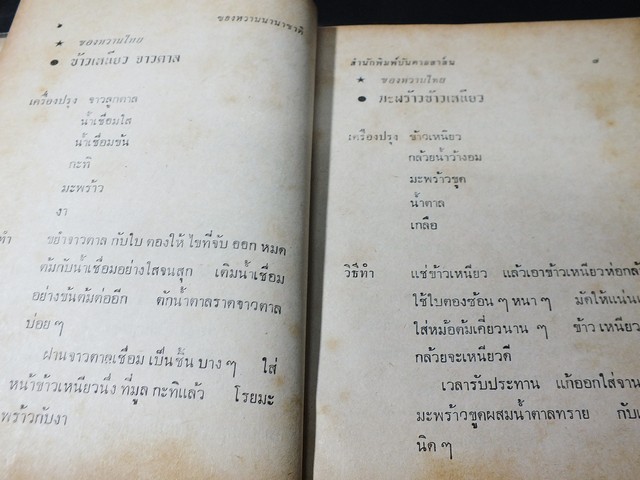 ของหวานนานาชาติ
★ ของหวานไทย
● ข้าวเหนียว จาวตาล
เครื่องปรุง จาวลูกตาล
น้ำเชื่อมใส
น้ำเชื่อมข้น
กะทิ
มะพร้าว
งา
ทำ ขยำจาวตาล กับใบ ตองให้ ไขที่จับ ออก หมด
ต้มกับน้ำเชื่อมอย่างใสจนสุก เติมน้ำเชื่อม
อย่างข้นต้มต่ออีก ตักน้ำตาลราดจาวตาล
บ่อย ๆ
ฝานจาวตาลเชื่อม เป็นชิ้น บาง ๆ ใส่
หน้าข้าวเหนียวนึ่ง ที่มูล กะทิแล้ว โรยมะ
พร้าวกับงา
สำนักพิมพ์บันดาลสาส์น
★ ของหวานไทย
● มะพร้าวข้าวเหนียว
เครื่องปรุง ข้าวเหนียว
กล้วยน้ำว้างอม
มะพร้าวขูด
น้ำตาล
เกลือ
วิธีทำ แช่ข้าวเหนียว แล้วเอาข้าวเหนียวห่อกล้
ใช้ใบตองซ้อน ๆ หนา ๆ มัดให้แน่น
ใส่หม้อต้มเคี่ยวนาน ๆ ข้าว เหนียว
กล้วยจะเหนียวดี
เวลารับประทาน แก้ออกใส่จาน
มะพร้าวขูดผสมน้ำตาลทราย กับ
นิด ๆ